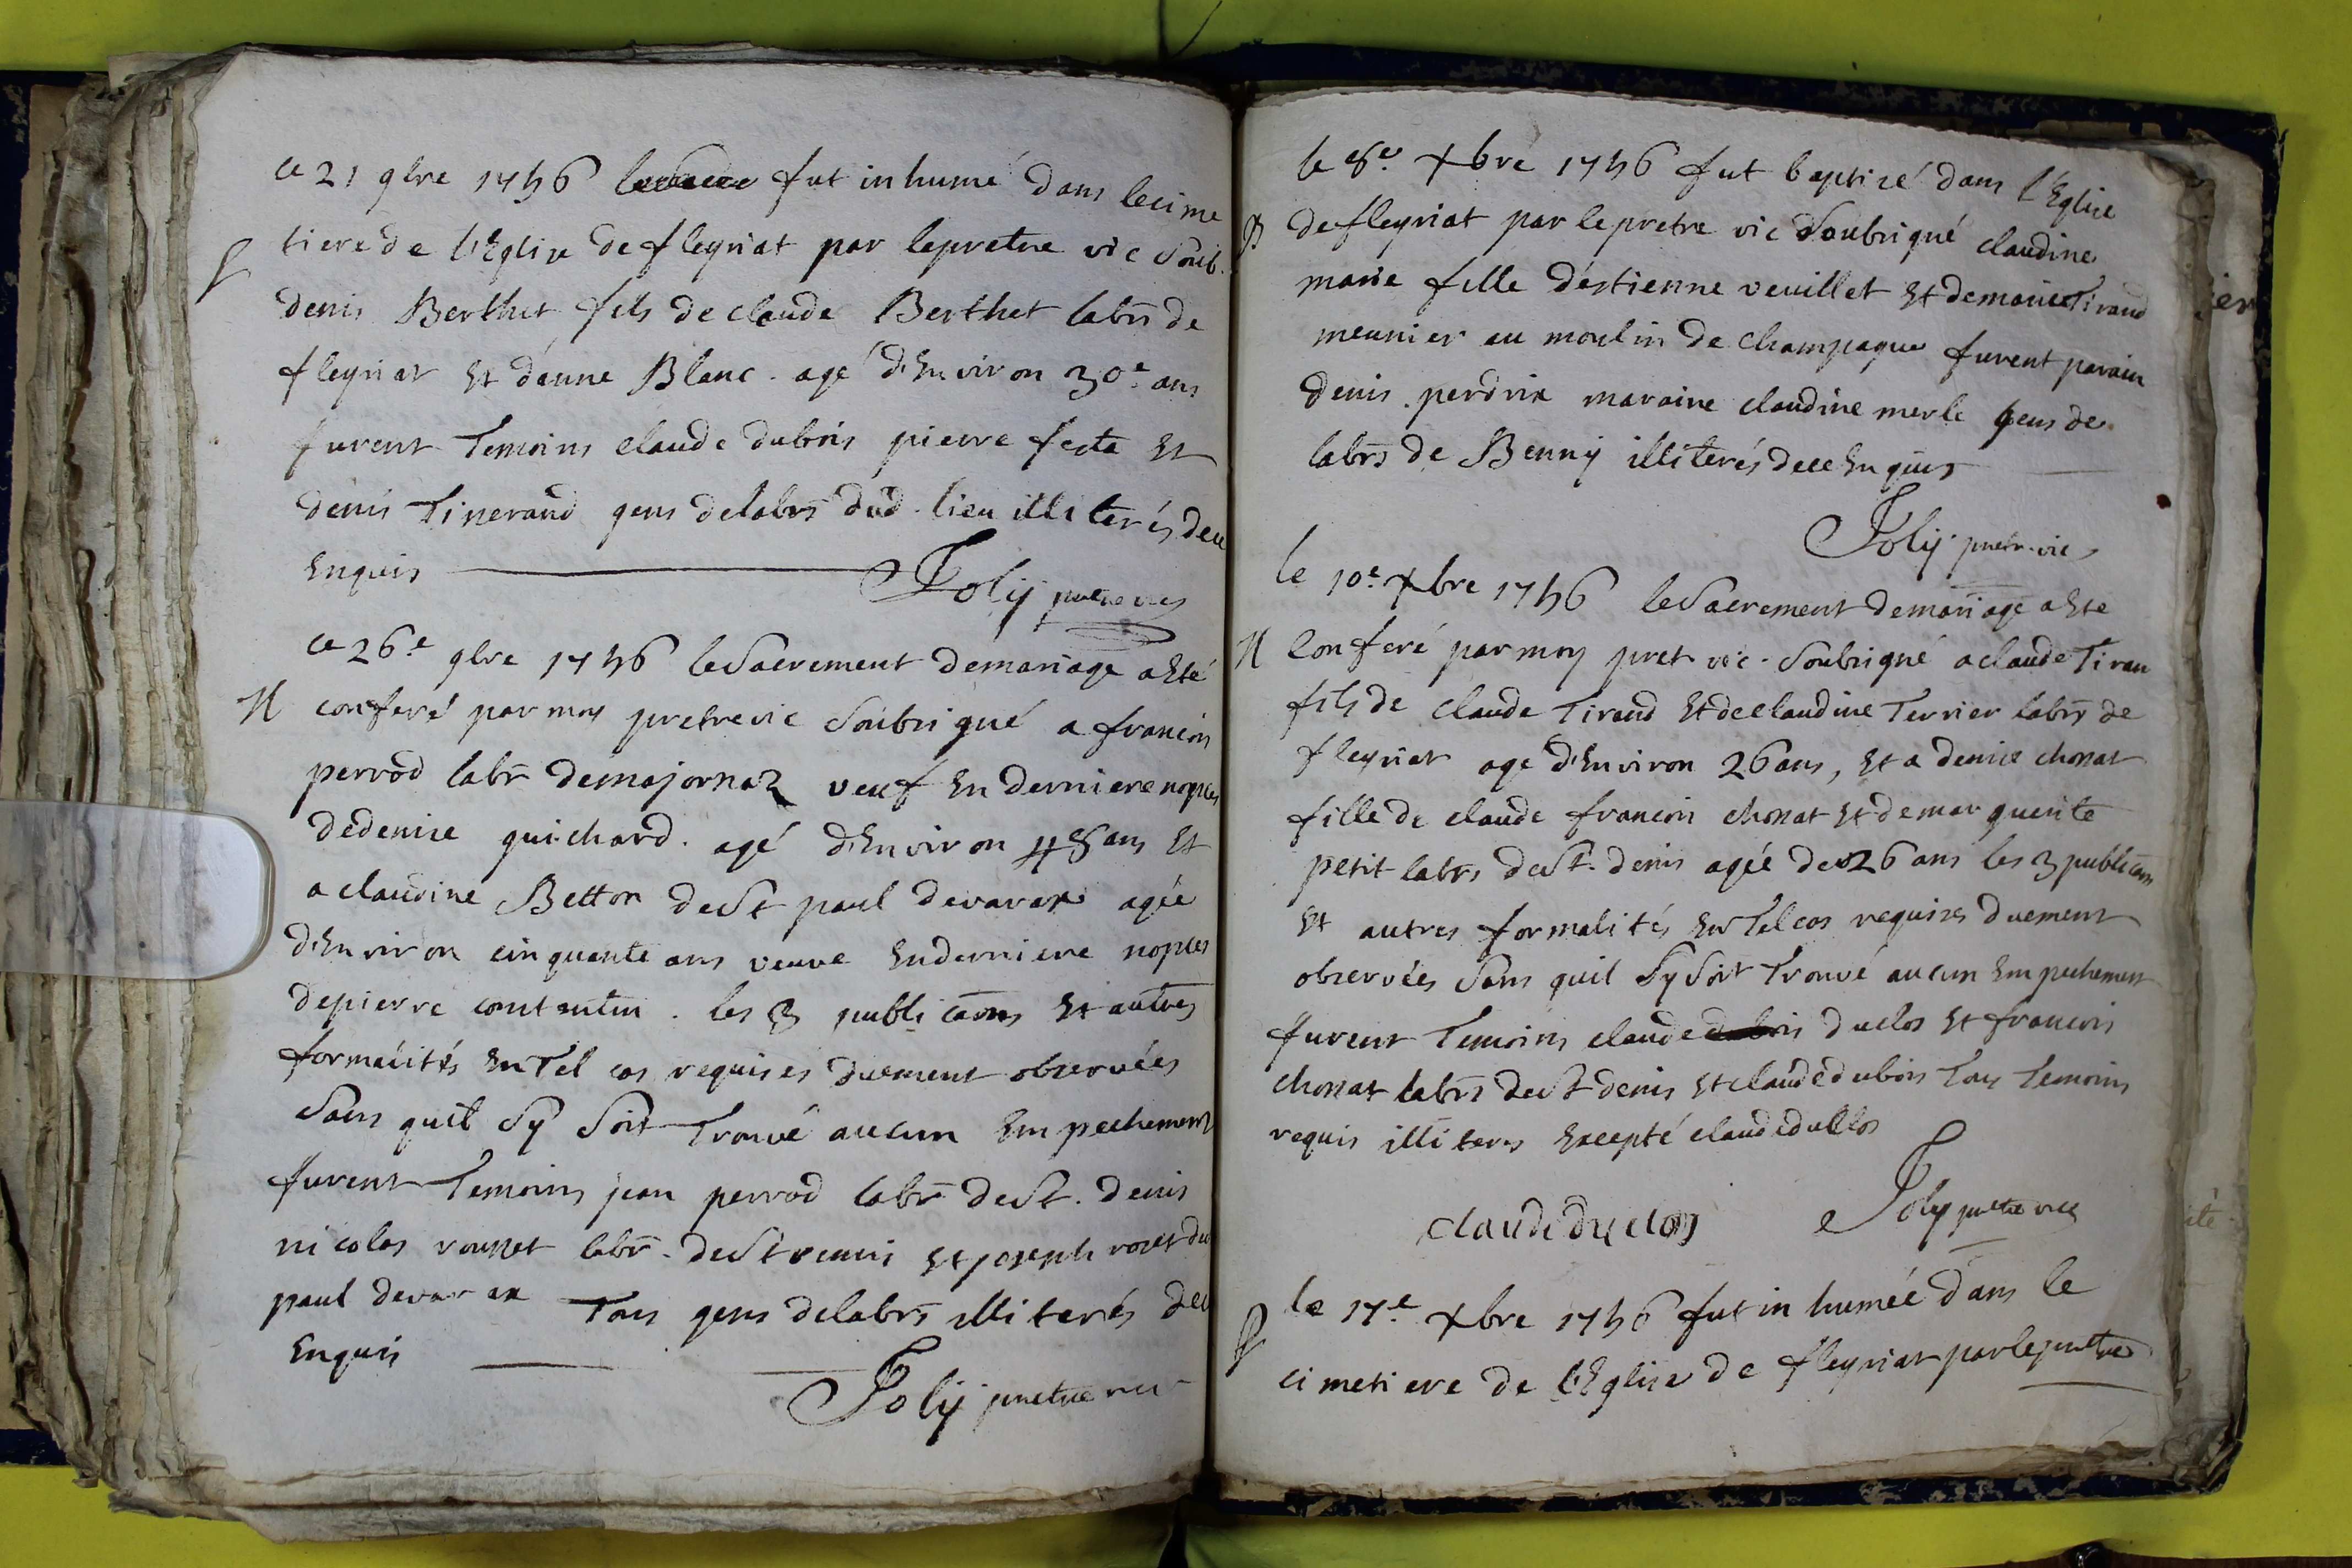 ce 21 9bre 1756 fut inhumé dans le cime
S tiere de l'Eglise de fleyriat par le pretre vic soub.
denis Berthet fils de claude Berthet labr de
fleyriat Et d'anne Blanc. agé d'Environ 30e ans
furent Temoins claude dubois pierre festa Et
denis Tinerand gens de labrs dud. lieu illiterés de ce
Enquis
Joly pretre vic
ce 26e 9bre 1756 le Sacrement de mariage a Eté
M conferé par moy pretre vic Soubsigné a francois
perrod labr de majornaz veuf En derniere nopces
de denise guichard. agé d'Environ 48 ans Et
a claudine Betton de St paul de varax agée
d'Environ cinquante ans veuve En derniere nopces
de pierre constantin. les 3 publicaons Et autres
formalités En Tel cas requises duement observées
Sans quil Sy Soit Trouvé aucun Empechement
furent Temoins jean perrod labr de St. denis
nicolas rousset labr. de St remis Et joseph roset du
paul de varax Tous gens de labrs illiterés de ce
Enquis
Joly pretre vic
le 8e xbre 1756 fut baptisé dans l'Eglise
B de fleyriat par le pretre vic Soubsigné claudine
marie fille d'estienne veuillet Et de marie Tirand
meunier au moulin de champagne furent parain
denis perdrix maraine claudine merle gens de
labrs de Benny illiterés de ce Enquis
Joly pretr. vic
le 10e xbre 1756 le Sacrement de mariage a Ete
M Conferé par moy pret vic. Soubsigné a claude Tiran
fils de claude Tirand Et de claudine Terrier labrs de
fleyriat agé d'Environ 26 ans, Et a denise chonat
fille de claude francois chonat Et de marguerite
petit labrs de St. denis agée de 26 ans les 3 publicaons
Et autres formalités En Tel cas requises duement
observées Sans quil Sy Soit Trouvé aucun Empechement
furent Temoins claude duclos Et francois
chonat labrs de St denis Et claude dubois Tous Temoins
requis illiteres Excepté claude duclos
claude duclos Joly pretre vic
le 17e xbre 1756 fut inhumée dans le
S cimetiere de l'Eglise de fleyriat par le pretre